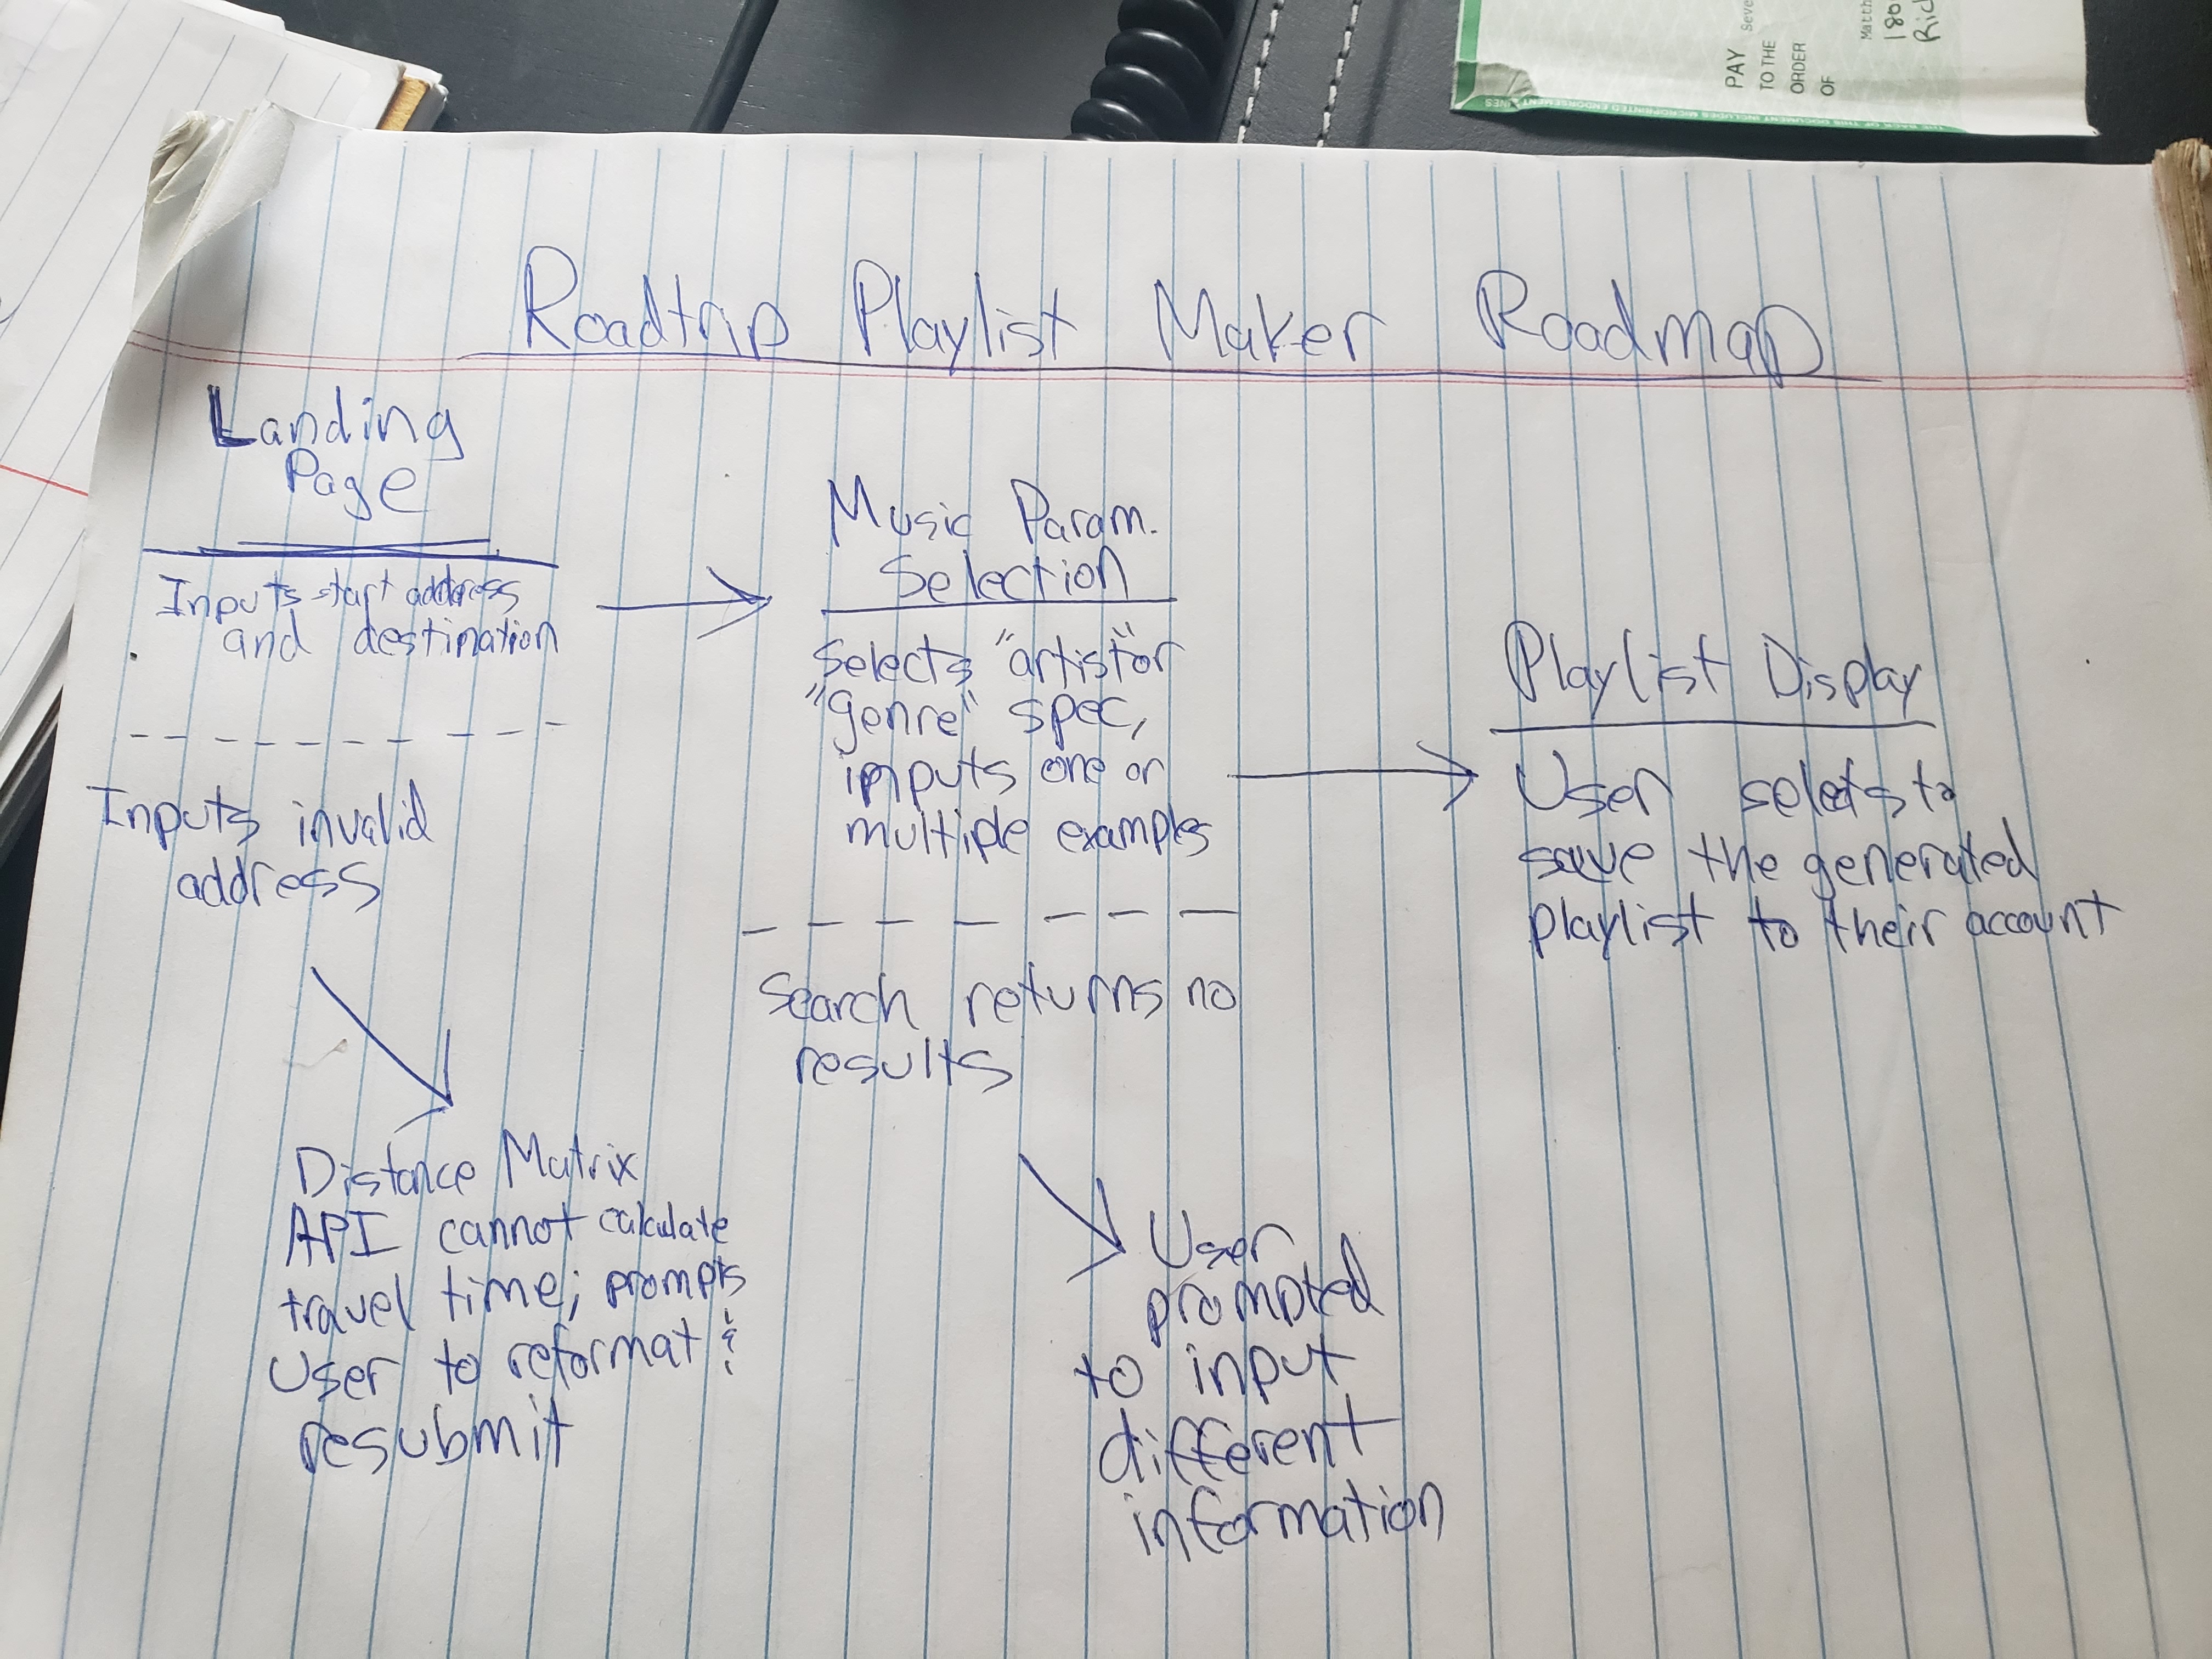 Roadtrip Playlist Maker Roadmap
Landing
Page
Inputs start address
and destination
Inputs invalid
address
Distance Matrix
API cannot calculate
travel time; prompts
User to reformat &
resubmit
Music Param.
Selection
Selects "artist" or
"genre" spec,
inputs one or
multiple examples
Search returns no
results
User
prompted
to input
different
information
Playlist Display
User selects to
save the generated
playlist to their account
PAY
TO THE
ORDER
OF
Seve
Matth
180
Ric